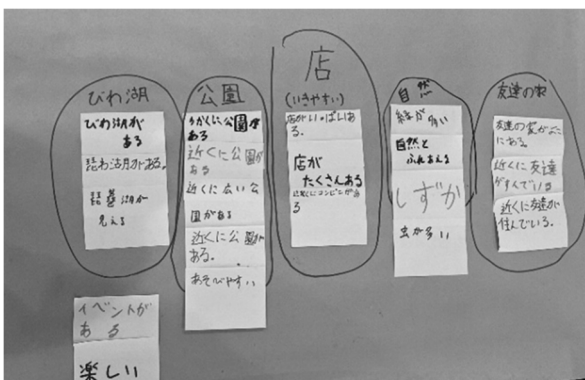 びわ湖
びわ湖が
ある
琵わ湖がある。
琵琶湖が
見える
公園
ちかくに公園が
ある
近くに公園が
ある
近くに広い公
園がある
近くに公園が
ある。
あそびやすい
店
(いきやすい)
店がいっぱいある。
店が
たくさんある
近くにコンビニがあ
る
自然
緑が多い
自然と
ふれあえる
しずか
虫が多い
友達の家
友達の家が
にある。
近くに友達
がすんでいる
近くに友達が
住んでいる。
イベントが
ある
楽しい